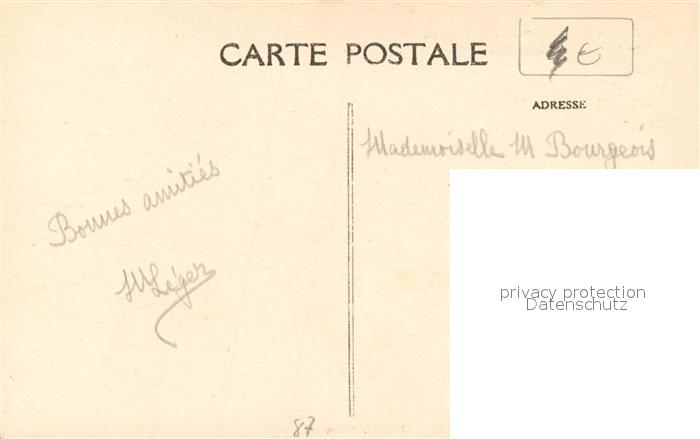 CARTE POSTALE
ADRESSE
Mademoiselle M Bourgeois
Bonnes amitiés
M Léger
87
privacy protection
Datenschutz